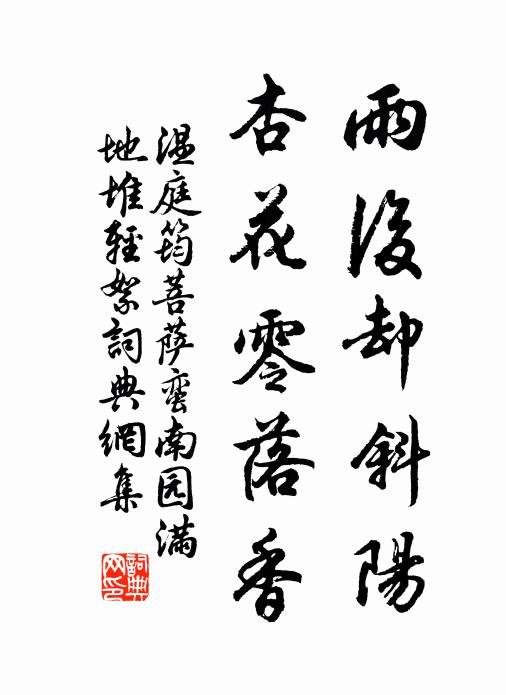 雨後却斜陽
杏花零落香
温庭筠菩薩蠻南园滿
地堆輕絮詞典網集
詞典
网印